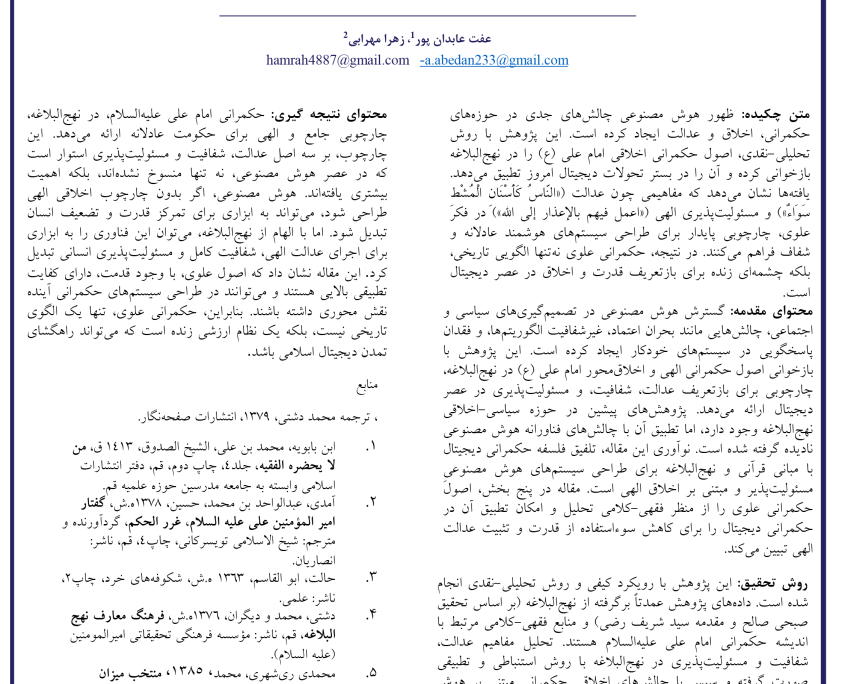 عفت عابدان پور1، زهرا مهرابی2
hamrah4887@gmail.com -a.abedan233@gmail.com
متن چکیده: ظهور هوش مصنوعی چالش‌های جدی در حوزه‌های
حکمرانی، اخلاق و عدالت ایجاد کرده است. این پژوهش با روش
تحلیلی-نقدی، اصول حکمرانی اخلاقی امام علی (ع) را در نهج‌البلاغه
بازخوانی کرده و آن را در بستر تحولات دیجیتال امروز تطبیق می‌دهد.
یافته‌ها نشان می‌دهد که مفاهیمی چون عدالت («النّاسُ کَأسْنَانِ الْمُشْط
سَوَاءٌ») و مسئولیت‌پذیری الهی («اعمل فیهم بالإعذار إلی الله») در فکر
علوی، چارچوبی پایدار برای طراحی سیستم‌های هوشمند عادلانه و
شفاف فراهم می‌کنند. در نتیجه، حکمرانی علوی نه‌تنها الگویی تاریخی،
بلکه چشمه‌ای زنده برای بازتعریف قدرت و اخلاق در عصر دیجیتال
است.
محتوای مقدمه: گسترش هوش مصنوعی در تصمیم‌گیری‌های سیاسی و
اجتماعی، چالش‌هایی مانند بحران اعتماد، غیرشفافیت الگوریتم‌ها، و فقدان
پاسخگویی در سیستم‌های خودکار ایجاد کرده است. این پژوهش با
بازخوانی اصول حکمرانی الهی و اخلاق‌محور امام علی (ع) در نهج‌البلاغه،
چارچوبی برای بازتعریف عدالت، شفافیت، و مسئولیت‌پذیری در عصر
دیجیتال ارائه می‌دهد. پژوهش‌های پیشین در حوزه سیاسی-اخلاقی
نهج‌البلاغه وجود دارد، اما تطبیق آن با چالش‌های فناورانه هوش مصنوعی
نادیده گرفته شده است. نوآوری این مقاله، تلفیق فلسفه حکمرانی دیجیتال
با مبانی قرآنی و نهج‌البلاغه برای طراحی سیستم‌های هوش مصنوعی
مسئولیت‌پذیر و مبتنی بر اخلاق الهی است. مقاله در پنج بخش، اصول
حکمرانی علوی را از منظر فقهی-کلامی تحلیل و امکان تطبیق آن در
حکمرانی دیجیتال را برای کاهش سوءاستفاده از قدرت و تثبیت عدالت
الهی تبیین می‌کند.
روش تحقیق: این پژوهش با رویکرد کیفی و روش تحلیلی-نقدی انجام
شده است. داده‌های پژوهش عمدتاً برگرفته از نهج‌البلاغه (بر اساس تحقیق
صبحی صالح و مقدمه سید شریف رضی) و منابع فقهی-کلامی مرتبط با
اندیشه حکمرانی امام علی علیه‌السلام هستند. تحلیل مفاهیم عدالت،
شفافیت و مسئولیت‌پذیری در نهج‌البلاغه با روش استنباطی و تطبیقی
صورت گرفته و سپس با چالش‌های اخلاقی حکمرانی مبتنی بر هوش
محتوای نتیجه گیری: حکمرانی امام علی علیه‌السلام، در نهج‌البلاغه،
چارچوبی جامع و الهی برای حکومت عادلانه ارائه می‌دهد. این
چارچوب، بر سه اصل عدالت، شفافیت و مسئولیت‌پذیری استوار است
که در عصر هوش مصنوعی، نه تنها منسوخ نشده‌اند، بلکه اهمیت
بیشتری یافته‌اند. هوش مصنوعی، اگر بدون چارچوب اخلاقی الهی
طراحی شود، می‌تواند به ابزاری برای تمرکز قدرت و تضعیف انسان
تبدیل شود. اما با الهام از نهج‌البلاغه، می‌توان این فناوری را به ابزاری
برای اجرای عدالت الهی، شفافیت کامل و مسئولیت‌پذیری انسانی تبدیل
کرد. این مقاله نشان داد که اصول علوی، با وجود قدمت، دارای کفایت
تطبیقی بالایی هستند و می‌توانند در طراحی سیستم‌های حکمرانی آینده
نقش محوری داشته باشند. بنابراین، حکمرانی علوی، تنها یک الگوی
تاریخی نیست، بلکه یک نظام ارزشی زنده است که می‌تواند راهگشای
تمدن دیجیتال اسلامی باشد.
منابع
، ترجمه محمد دشتی، ۱۳۷۹، انتشارات صفحه‌نگار.
۱. ابن بابویه، محمد بن علی، الشیخ الصدوق، ۱٤۱۳ ق، من
لا یحضره الفقیه، جلد٤، چاپ دوم، قم، دفتر انتشارات
اسلامی وابسته به جامعه مدرسین حوزه علمیه قم.
۲. آمدی، عبدالواحد بن محمد، حسین، ۱۳۷۸ه.ش، گفتار
امیر المؤمنین علی علیه السلام، غرر الحکم، گردآورنده و
مترجم: شیخ الاسلامی تویسرکانی، چاپ٤، قم، ناشر:
انصاریان.
۳. حالت، ابو القاسم، ۱۳٦۳ ه.ش، شکوفه‌های خرد، چاپ۲،
ناشر: علمی.
۴. دشتی، محمد و دیگران، ۱۳۷٦ه.ش، فرهنگ معارف نهج
البلاغه، قم، ناشر: مؤسسه فرهنگی تحقیقاتی امیرالمومنین
(علیه السلام).
۵. محمدی ری‌شهری، محمد، ۱۳۸۵، منتخب میزان